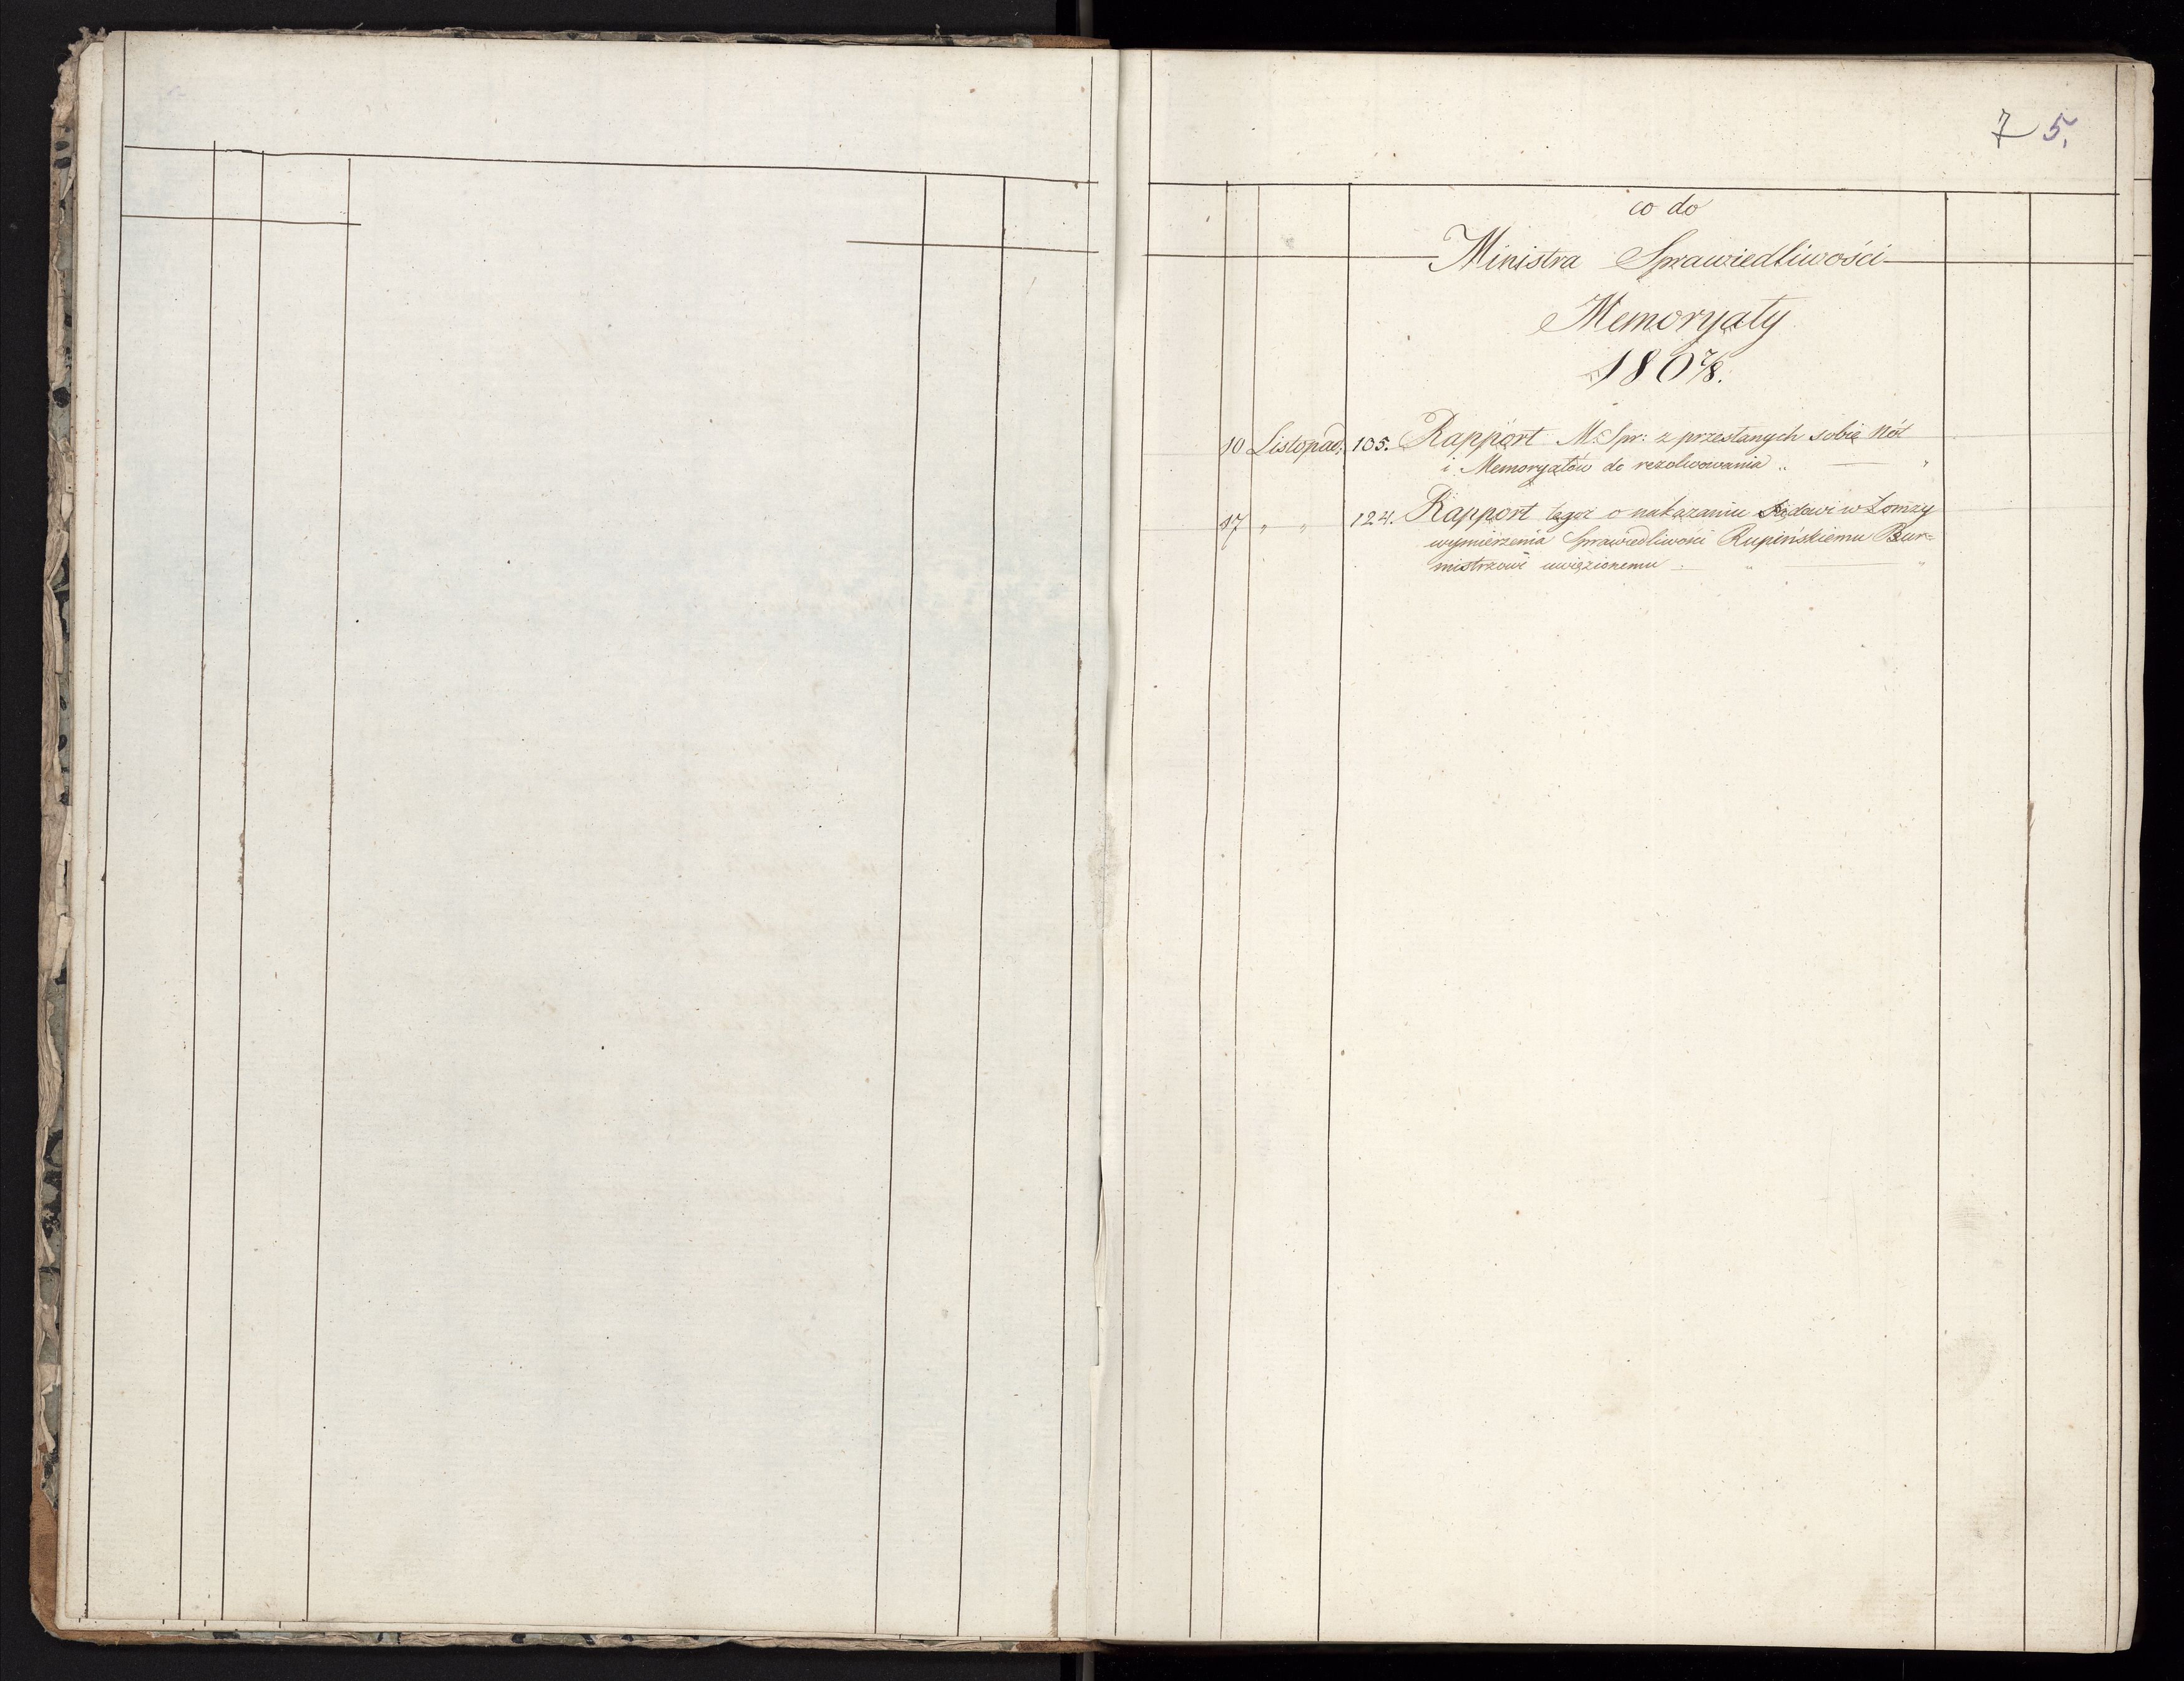 7 5,
co do
Ministra Sprawiedliwości
Memoryały
180 7/8.
10 Listopad; 105. Rapport M. Spr: z przesłanych sobie Nót
i Memoryałów do rezolwowania „ — „
17 „ „ 124. Rapport tegoż o nakazaniu Sądowi w Łomży
wymierzenia Sprawiedliwości Rupińskiemu Bur=
mistrzowi uwięzionemu — „ — „